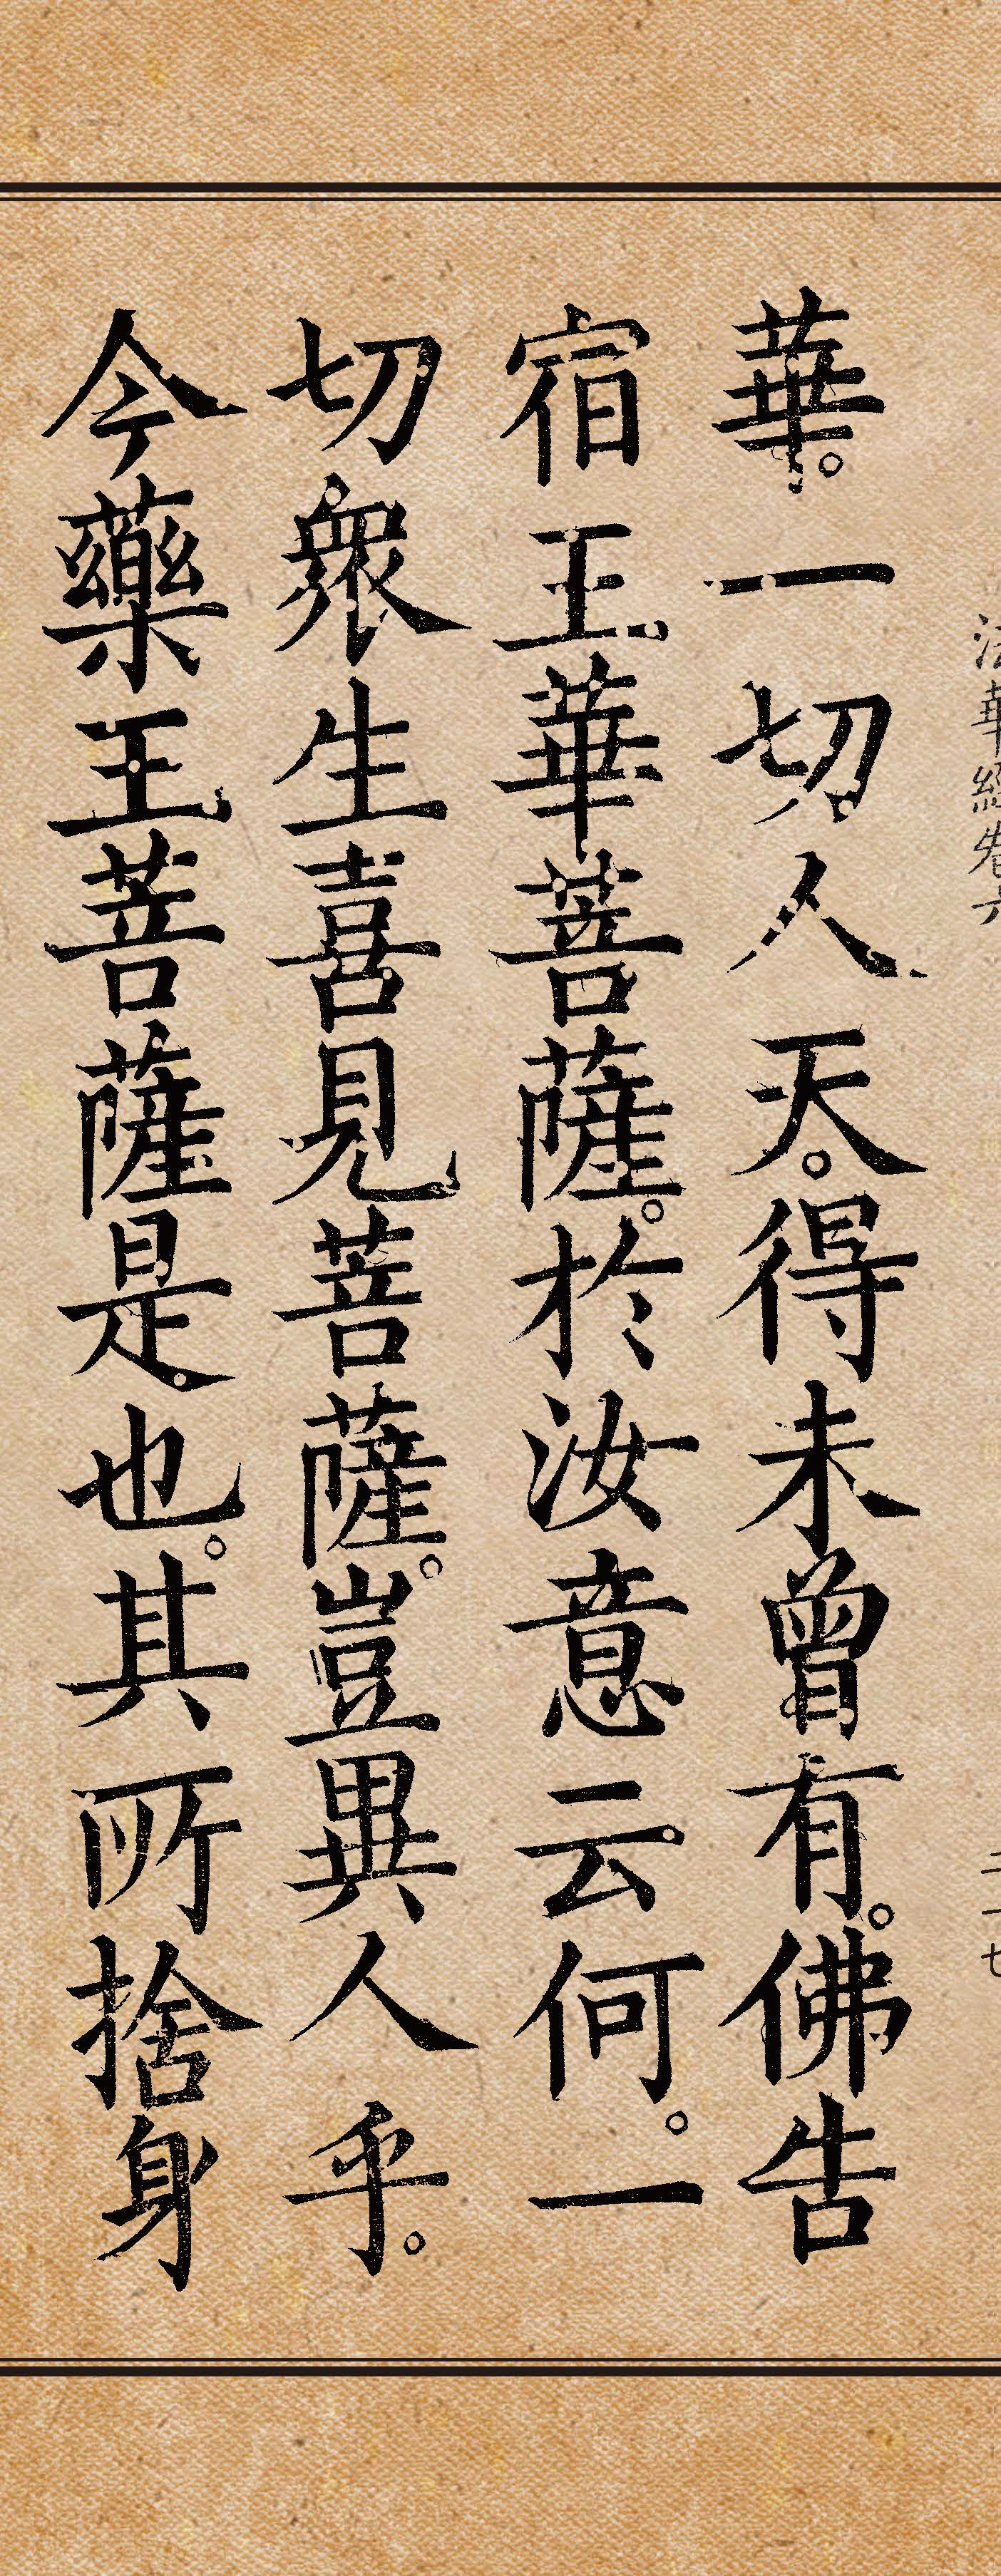 法華經卷六
二一七
華。一切人天。得未曾有。佛告
宿王華菩薩。於汝意云何。一
切衆生喜見菩薩。豈異人乎。
今藥王菩薩是也。其所捨身